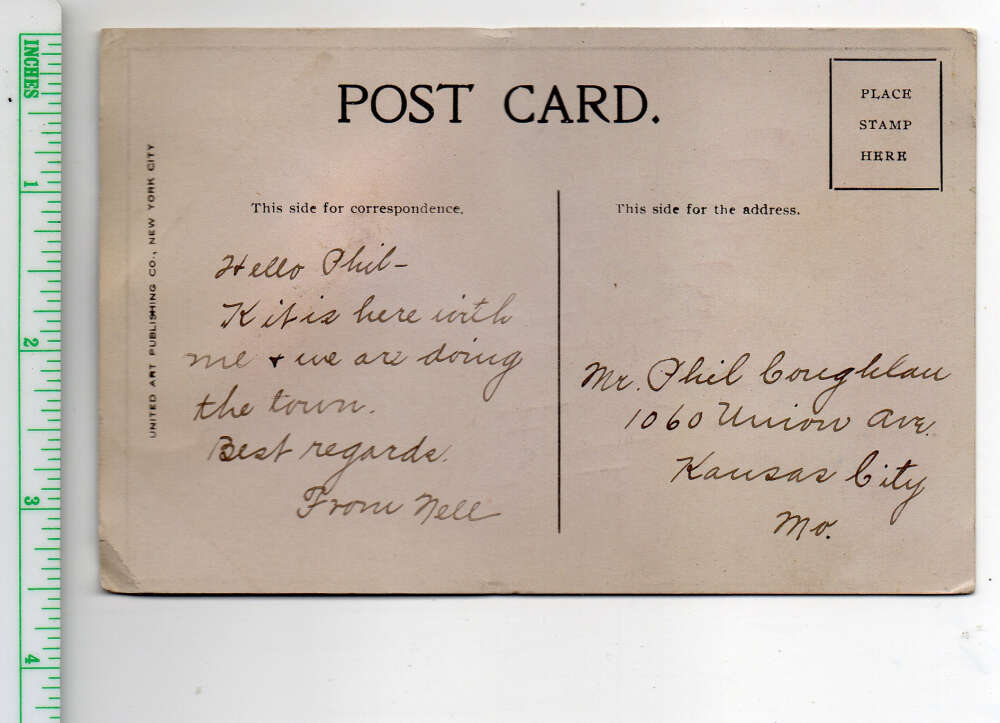 INCHES
1
2
3
4
POST CARD.
PLACE
STAMP
HERE
UNITED ART PUBLISHING CO., NEW YORK CITY
This side for correspondence.
Hello Phil-
Kit is here with
me + we are doing
the town.
Best regards.
From Nell
This side for the address.
Mr. Phil Coughlan
1060 Union Ave.
Kansas City
Mo.